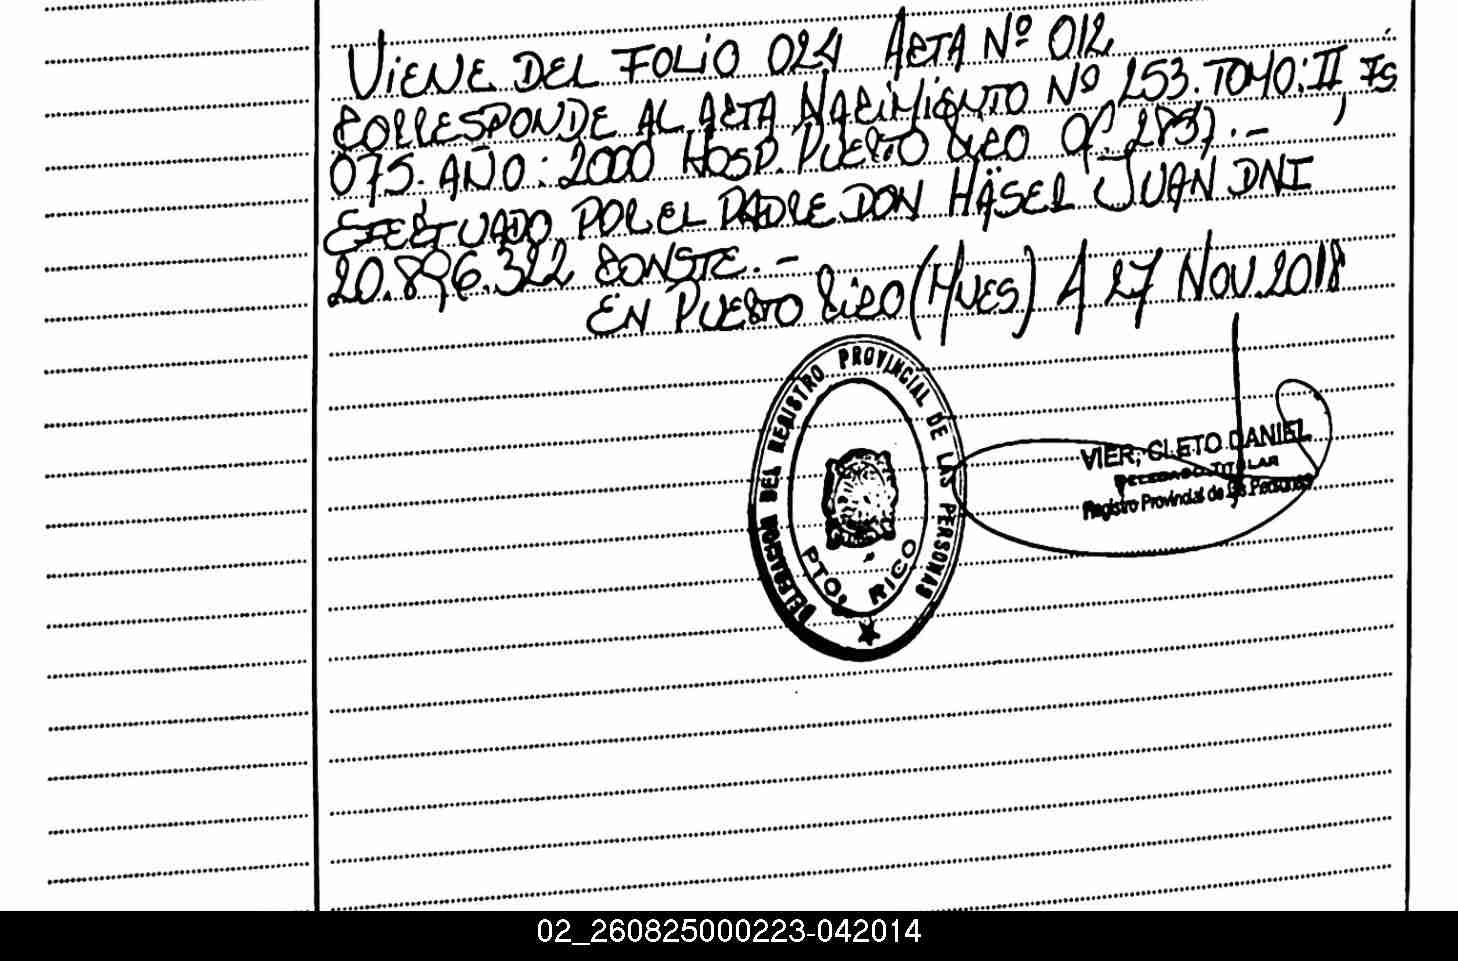 VIENE DEL FOLIO 024 ACTA Nº 012
CORRESPONDE AL ACTA NACIMIENTO Nº 253. TOMO: II, FS
075. AÑO: 2000 HOSP. PUERTO RICO OF. 2837.-
EFECTUADO POR EL PADRE DON HÄSEL JUAN DNI
20.896.322 CONSTE.-
EN PUERTO RICO (MNES) A 27 NOV. 2018
DELEGACION DEL REGISTRO PROVINCIAL DE LAS PERSONAS
PTO. RICO
VIER, CLETO DANIEL
DELEGADO TITULAR
Registro Provincial de las Personas
02_260825000223-042014